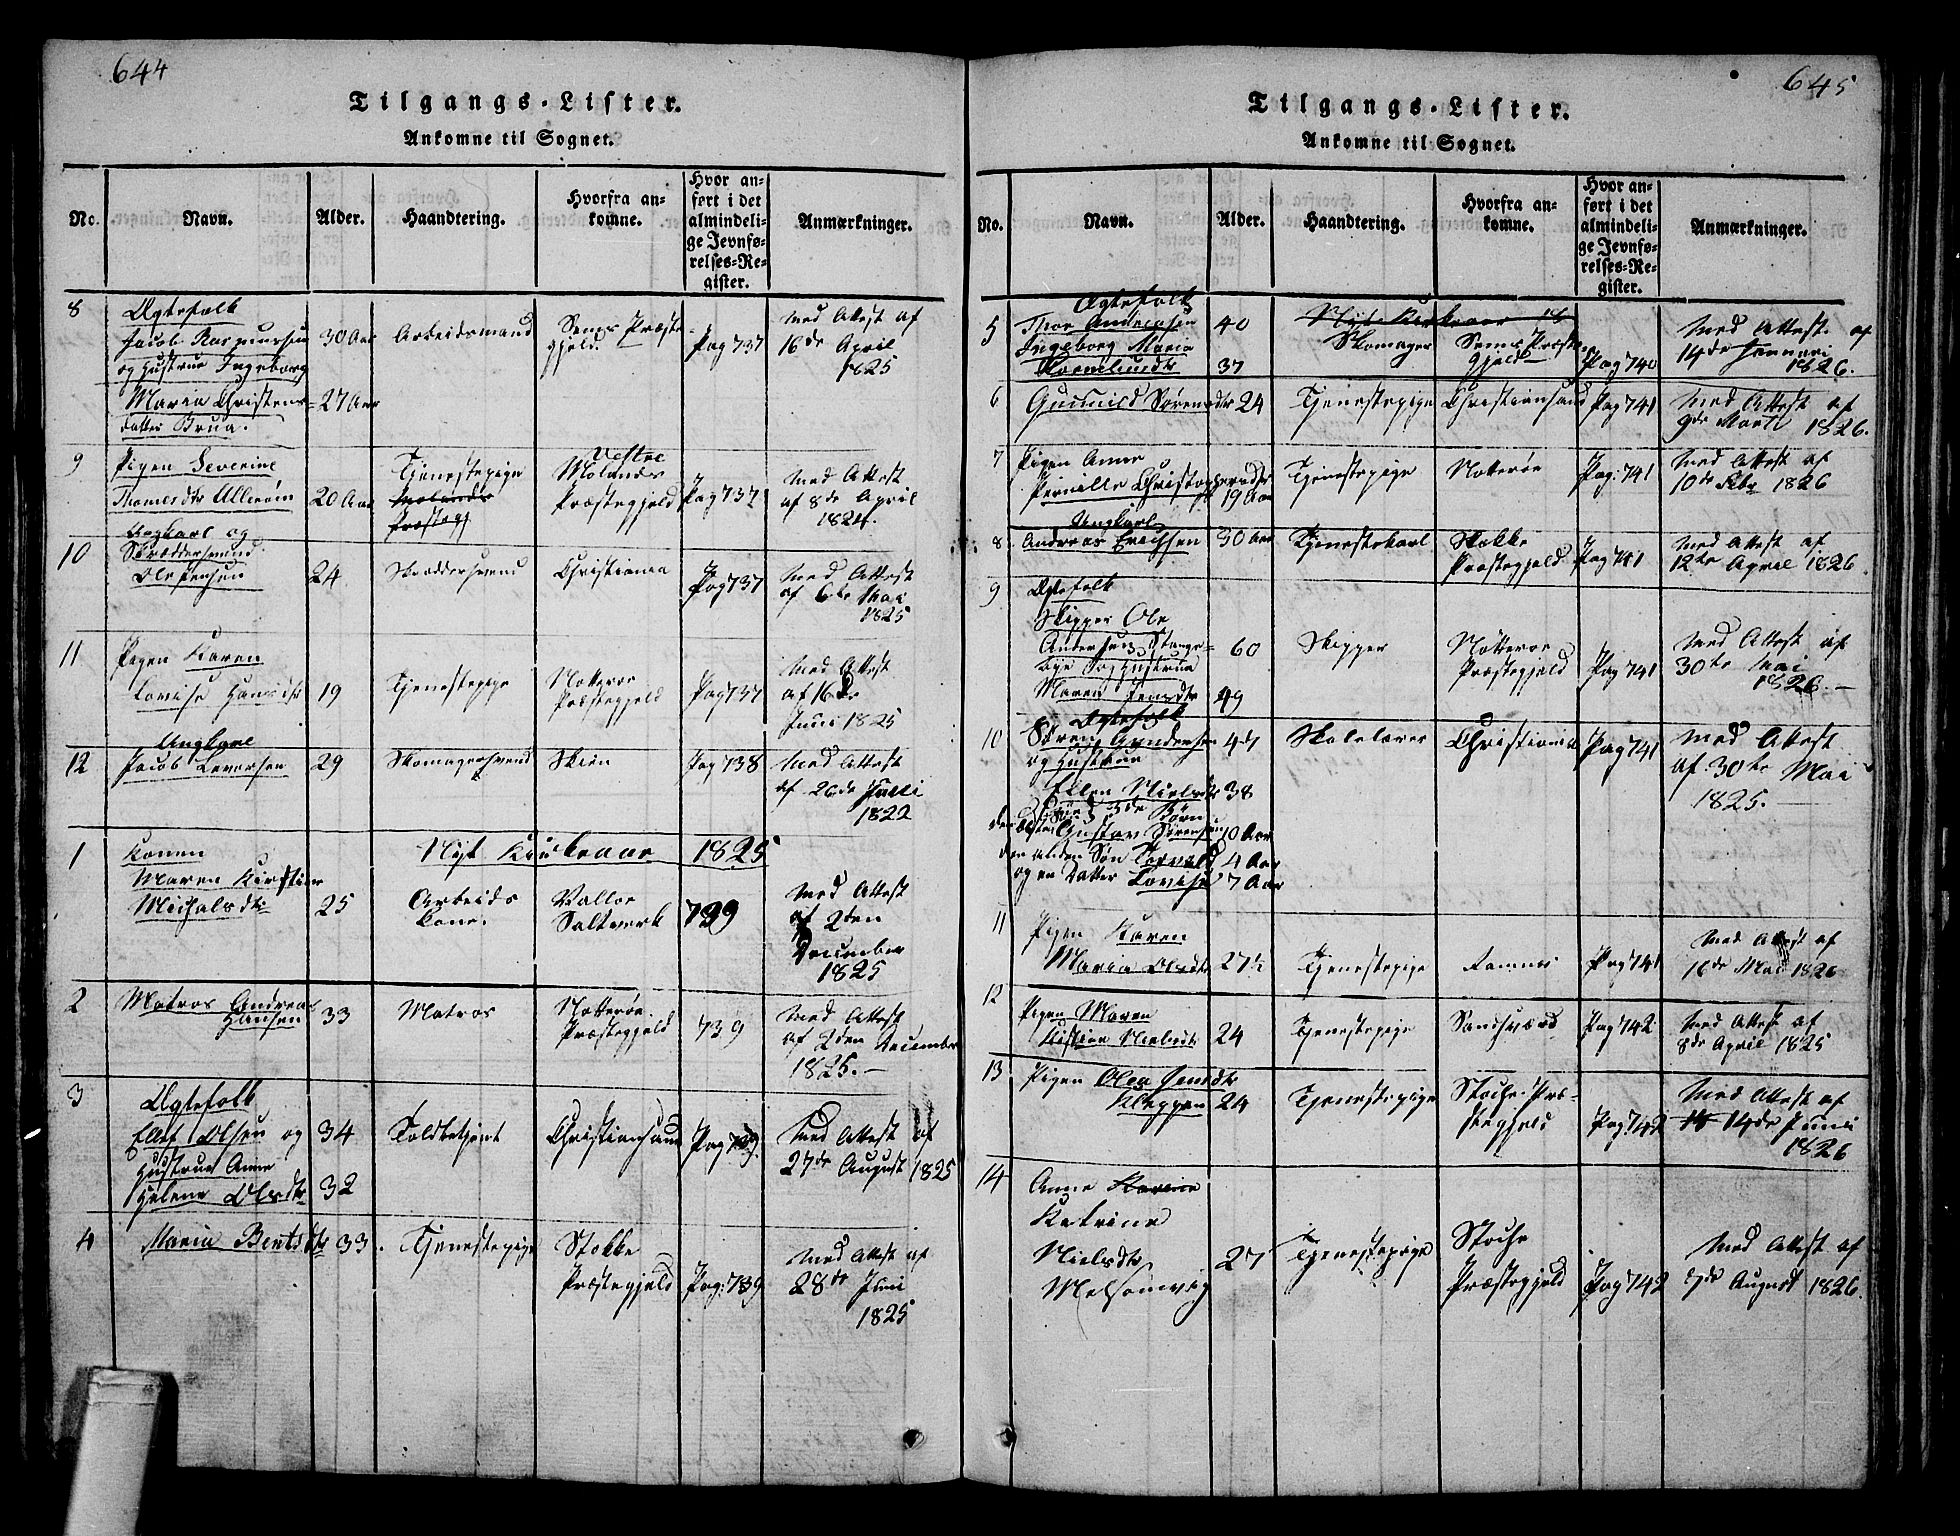 644
Tilgangs-Lister.
Ankomne til Sognet.
No.
Navn.
Alder.
Haandtering.
Hvorfra an-
komne.
Hvor an-
ført i det
almindeli-
ge Jevnfø-
relses-Re-
gister.
Anmærkninger.
8
Ægtefolk
Jacob Rasmussen
og Hustrue Ingeborg
Maria Christens-
datter Brua.
30 Aar
27 Aar
Arbeidsmand
Sems Præste-
gjeld.
Pag 737
Med Attest af
16de April
1825
9
Pigen Severine
Thomesdtr Ulleröin
20 Aar
Tjenestepige
Molands
Præstegj
Vestre
Molands
Præstegjeld
Pag 737
Med Attest
af 8de April
1824.
10
Ungkarl og
Skræddersvend
Ole Jensen
24
Skræddersvend
Christiania
Pag 737
Med Attest
af 6te Mai
1825
11
Pigen Karen
Lovise Hansdtr
19
Tjenestepige
Nøtterøe
Præstegjeld
Pag 737
Med Attest
af 16de
Juni 1825
12
Ungkarl
Jacob Leversen
29
Skomagersvend
Skien
Pag 738
Med Attest
af 26de Julii
1822
Nyt Kirkeaar 1825
1
Konen
Maren Kirstine
Michalsdtr
25
Arbeids
Kone.
Valloe
Saltverk
739
Med Attest
af 2den
December
1825
2
Matros Andreas
Hansen
33
Matros
Nøtterøe
Præstegjeld
739
Med Attest
af 2den December
1825.-
3
Ægtefolk
Ellef Olsen og
Hustrue Anne
Helene Olsdtr
34
32
Toldbetjent
Christiansand
Pag 739.
Med Attest af
27de August 1825
4
Maria Bentsdtr
33.
Tjenestepige
Stokke
Præstegjeld
Pag: 739
Med Attest af
28de Juni
1825
645
Tilgangs-Lister.
Ankomne til Sognet.
No.
Navn.
Alder.
Haandtering.
Hvorfra an-
komne.
Hvor an-
ført i det
almindeli-
ge Jevnfø-
relses-Re-
gister.
Anmærkninger.
5
Ægtefolk
Thor Andersen
Ingeborg Maria
40
37
Nyt Kirkeaar
Skomager
Sems Præste-
gjeld
Pag 740
Med Attest af
14de Januari
1826.
6
Gunnild Sørensdtr
24
Tjenestepige
Christiansand
Pag 741
Med Attest af
9de Marti 1826.
7
Pigen Anne
Pernille Christophersdtr
19 Aar
Tjenestepige
Nøtterøe
Pag: 741
Med Attest af
10de 1826
8
Ungkarl
Andreas Erichsen
30 Aar
Tjenestekarl
Stokke
Præstegjeld
Pag 741
Med Attest af
12te April 1826
9
Ægtefolk
Skipper Ole
Andersen Stange-
bye og Hustrue
Maren Jensdtr
60
49
Skipper
Nøtterøe
Præstegjeld
Pag 741
Med Attest af
30te Mai
1826.-
10
Ægtefolk
Søren Gundersen
og Hustrue
Ellen Nielsdtr
47
38
3de Børn
den ældste Gustav Sørensen 10 Aar
den anden Søn Torvald 4 Aar
og en Datter Lovise 7 Aar
Skolelærer
Christiania
Pag 741
Med Attest
af 30te Mai
1825.-
11
Pigen Karen
Maria Olsdtr
27½
Tjenestepige
Ramnes
Pag 741
Med Attest af
16de Mai 1826
12
Pigen Maren
Kistine Nielsdtr
24
Tjenestepige
Sandsværd
Pag 742
Med Attest af
8de April 1825
13
Pigen Olea Jensdtr
Kleppen
24
Tjenestepige
Stoche Præ-
stegjeld
Pag: 742
Med Attest af
14 14de Juni
1826
14
Anne Karine
Katrine
Nielsdtr
Melsomvig
27
Tjenestepige
Stoche
Præstegjeld
Pag 742
Med Attest af
7de August 1826.